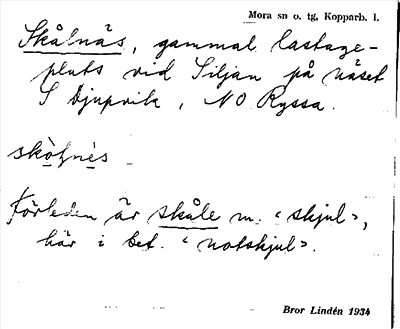 Mora sn o. tg, Kopparb. l.
Skålnäs, gammal lastage-
plats vid Siljan på näset
S Djupvik, NO Ryssa.
skò̱ţnè̱s
Förleden är skåle m. "skjul",
här i bet. "notskjul".
Bror Lindén 1934